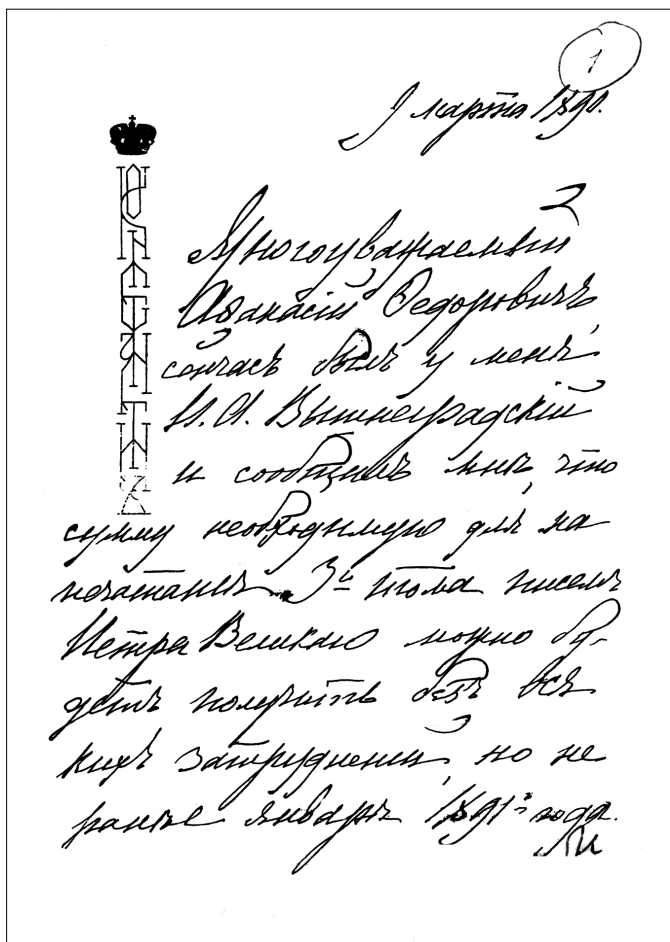 1
9 марта 1890.
Многоуважаемый
Афанасій Федоровичъ,
сейчасъ былъ у меня
И. А. Вышнеградскій
и сообщилъ мнѣ, что
сумму необходимую для на
печатанія 3го тома писемъ
Петра Великаго можно бу-
детъ получить безъ вся
кихъ затрудненій, но не
ранѣе января 1891го года.